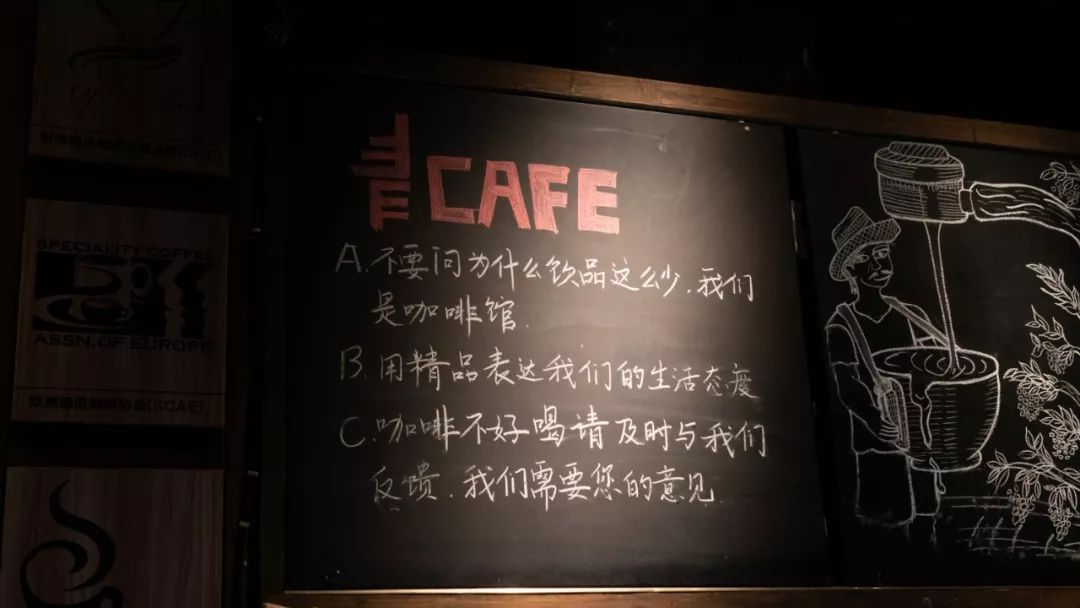 CAFE
A.不要问为什么饮品这么少.我们
是咖啡馆.
B.用精品表达我们的生活态度
C.咖啡不好喝请及时与我们
反馈.我们需要您的意见
SPECIALITY COFFEE
ASSN.OF EUROPE
欧洲精品咖啡协会(SCAE)